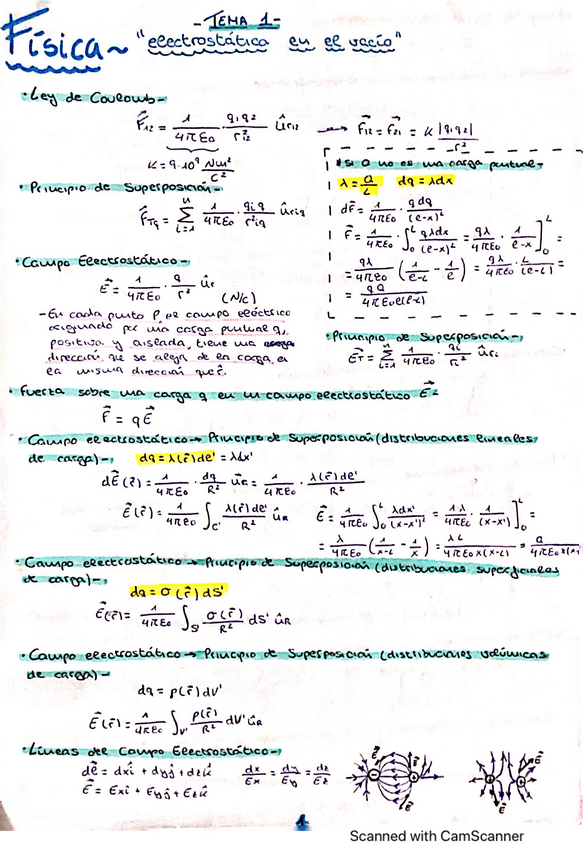 Física~
- TEMA 1 -
"electrostática en el vacío"
· Ley de Coulomb -
F⃗₁₂ = 1/4πε₀ · q₁q₂/r²₁₂ û r₁₂ → F⃗₁₂ = F⃗₂₁ = K |q₁q₂|/r²
K = 9·10⁹ Nm²/C²
* si Q no es una carga puntual -
λ = Q/L dq = λdx
dF⃗ = 1/4πε₀ · q dq/(l-x)²
F⃗ = 1/4πε₀ · ∫₀ᴸ qλdx/(l-x)² = qλ/4πε₀ · 1/l-x ]₀ᴸ =
= qλ/4πε₀ (1/l-L - 1/l) = qλ/4πε₀ · L/l(l-L) =
= qQ/4πε₀l(l-L)
· Principio de Superposición -
F⃗Tq = Σᵢ₌₁ⁿ 1/4πε₀ · qᵢq/r²ᵢq û rᵢq
· Campo Electrostático -
E⃗ = 1/4πε₀ · q/r² ûr (N/C)
- En cada punto P, el campo eléctrico
originado por una carga puntual q,
positiva y aislada, tiene una
dirección que se aleja de la carga, en
la misma dirección que r⃗.
· Principio de Superposición -
E⃗T = Σᵢ₌₁ⁿ 1/4πε₀ · qᵢ/rᵢ² û rᵢ
· Fuerza sobre una carga q en un campo electrostático E⃗ -
F⃗ = qE⃗
· Campo electrostático → Principio de Superposición (distribuciones lineales
de carga) - dq = λ(r⃗)dl' = λdx'
dE⃗(r⃗) = 1/4πε₀ · dq/R² ûR = 1/4πε₀ · λ(r⃗)dl'/R²
E⃗(r⃗) = 1/4πε₀ ∫C' λ(r⃗)dl'/R² ûR E⃗ = 1/4πε₀ ∫₀ᴸ λdx'/(x-x')² = 1λ/4πε₀ · 1/(x-x') ]₀ᴸ =
= λ/4πε₀ (1/x-L - 1/x) = λL/4πε₀x(x-L) =
· Campo electrostático → Principio de Superposición (distribuciones superficiales
de carga) -
dq = σ(r⃗)dS'
E⃗(r⃗) = 1/4πε₀ ∫S' σ(r⃗)/R² dS' ûR
· Campo electrostático → Principio de Superposición (distribuciones volúmicas
de carga) -
dq = ρ(r⃗)dV'
E⃗(r⃗) = 1/4πε₀ ∫V' ρ(r⃗)/R² dV' ûR
· Líneas del Campo Electrostático -
dl⃗ = dxî + dyĵ + dzk̂ dx/Ex = dy/Ey = dz/Ez
E⃗ = Exî + Eyĵ + Ezk̂
1
Scanned with CamScanner